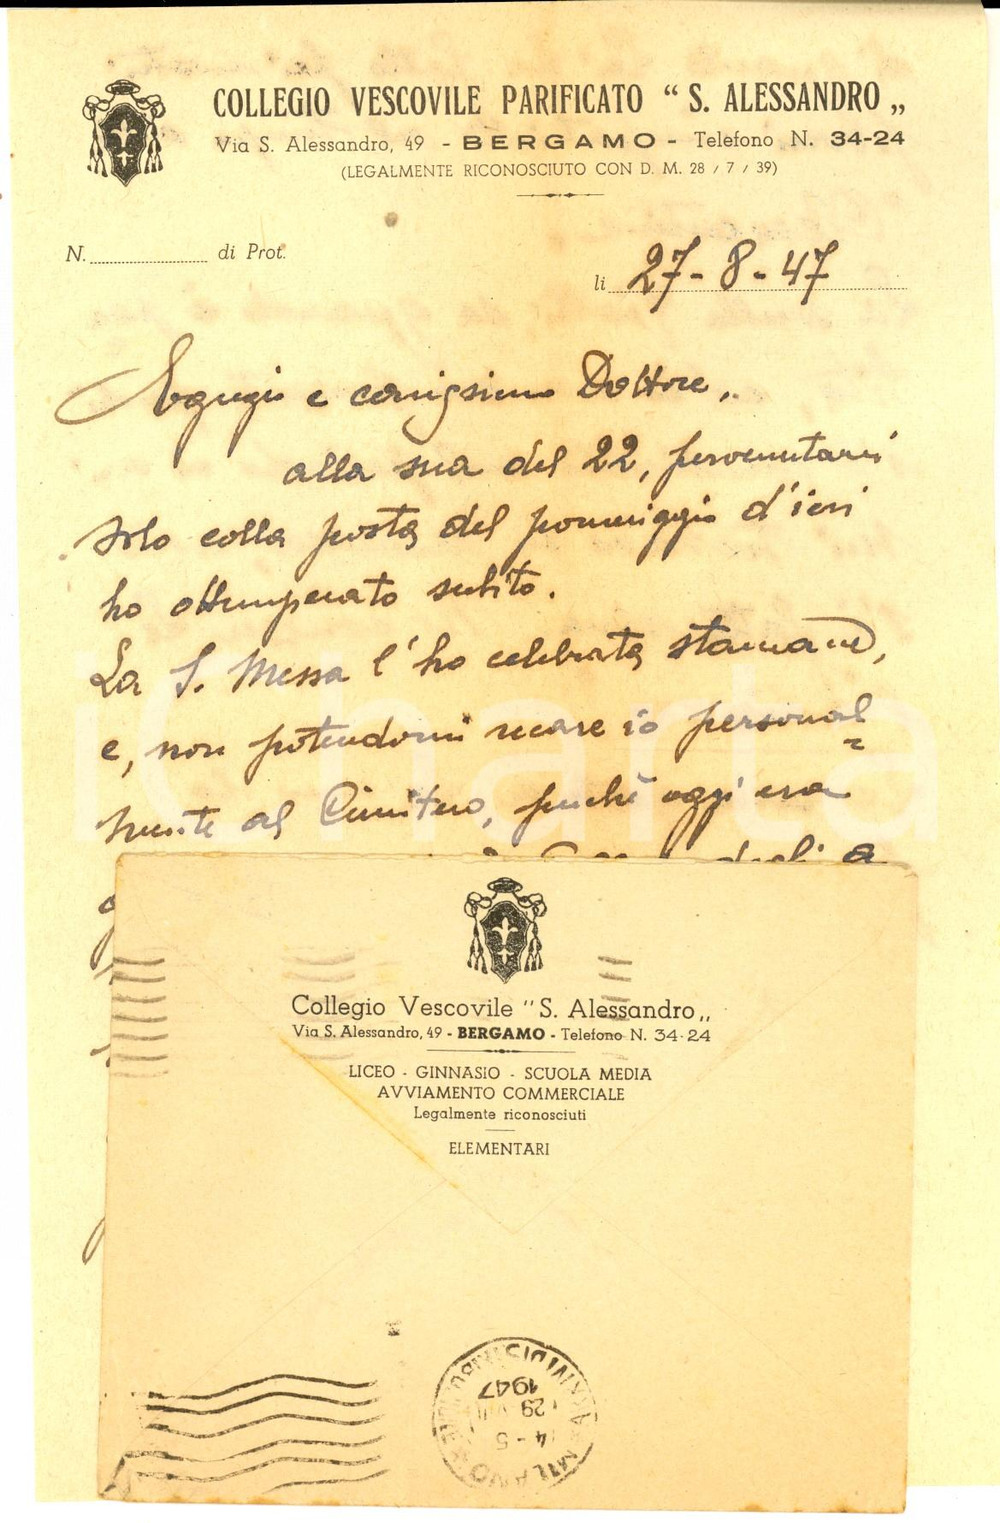 COLLEGIO VESCOVILE PARIFICATO “ S. ALESSANDRO „
Via S. Alessandro, 49 - BERGAMO - Telefono N. 34-24
(LEGALMENTE RICONOSCIUTO CON D. M. 28 / 7 / 39)
N. di Prot.
li 27-8-47
Egregio e carissimo Dottore,
alla sua del 22, pervenutami
solo colla posta del pomeriggio d'ieri
ho ottemperato subito.
La S. Messa l'ho celebrata stamane,
e, non potendomi recare io personal=
mente al Cimitero, perchè oggi era
Collegio Vescovile "S. Alessandro„
Via S. Alessandro, 49 - BERGAMO - Telefono N. 34-24
LICEO - GINNASIO - SCUOLA MEDIA
AVVIAMENTO COMMERCIALE
Legalmente riconosciuti
ELEMENTARI
MILANO
4-5
29 VIII
1947